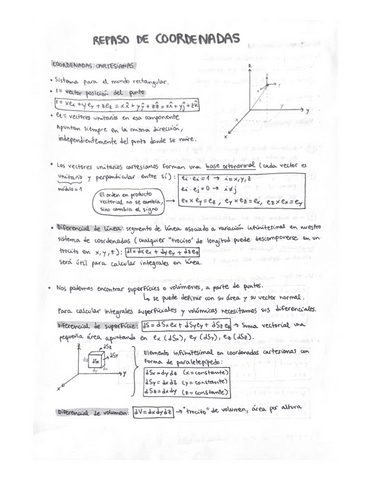 REPASO DE COORDENADAS
COORDENADAS CARTESIANAS:
• Sistema para el mundo rectangular.
• r = vector posición del punto
r = xex + yey + zez = xx̂ + yŷ + zẑ = xî + yĵ + zk̂
• ei = vectores unitarios en esa componente
Apuntan siempre en la misma dirección,
independientemente del punto donde se mire.
z
y
x
• Los vectores unitarios cartesianos forman una base ortonormal (cada vector es
unitario y perpendicular entre sí):
módulo 1
El orden en producto
vectorial no se cambia,
sino cambia el signo
ei · ei = 1 → i = x, y, z
ei · ej = 0 → i ≠ j
ex × ey = ez, ey × ez = ex, ez × ex = ey
• Diferencial de línea: segmento de línea asociado a variación infinitesimal en nuestro
sistema de coordenadas (cualquier "trocito" de longitud puede descomponerse en un
trocito en x, y, z): dl = dxex + dyey + dzez
será útil para calcular integrales en línea.
• Nos podemos encontrar superficies o volúmenes, a parte de puntos.
↳ se puede definir con su área y su vector normal.
Para calcular integrales superficiales y volúmicas necesitamos sus diferenciales.
Diferencial de superficie: dS = dSxex + dSyey + dSzez → suma vectorial una
pequeña área apuntando en ex (dSx), ey (dSy), ez (dSz).
z
dSz
dSy
dSx
y
x
Elemento infinitesimal en coordenadas cartesianas con
forma de paralelepípedo:
dSx = dydz (x = constante)
dSy = dxdz (y = constante)
dSz = dxdy (z = constante)
Diferencial de volumen: dV = dxdydz → "trocito" de volumen, área por altura